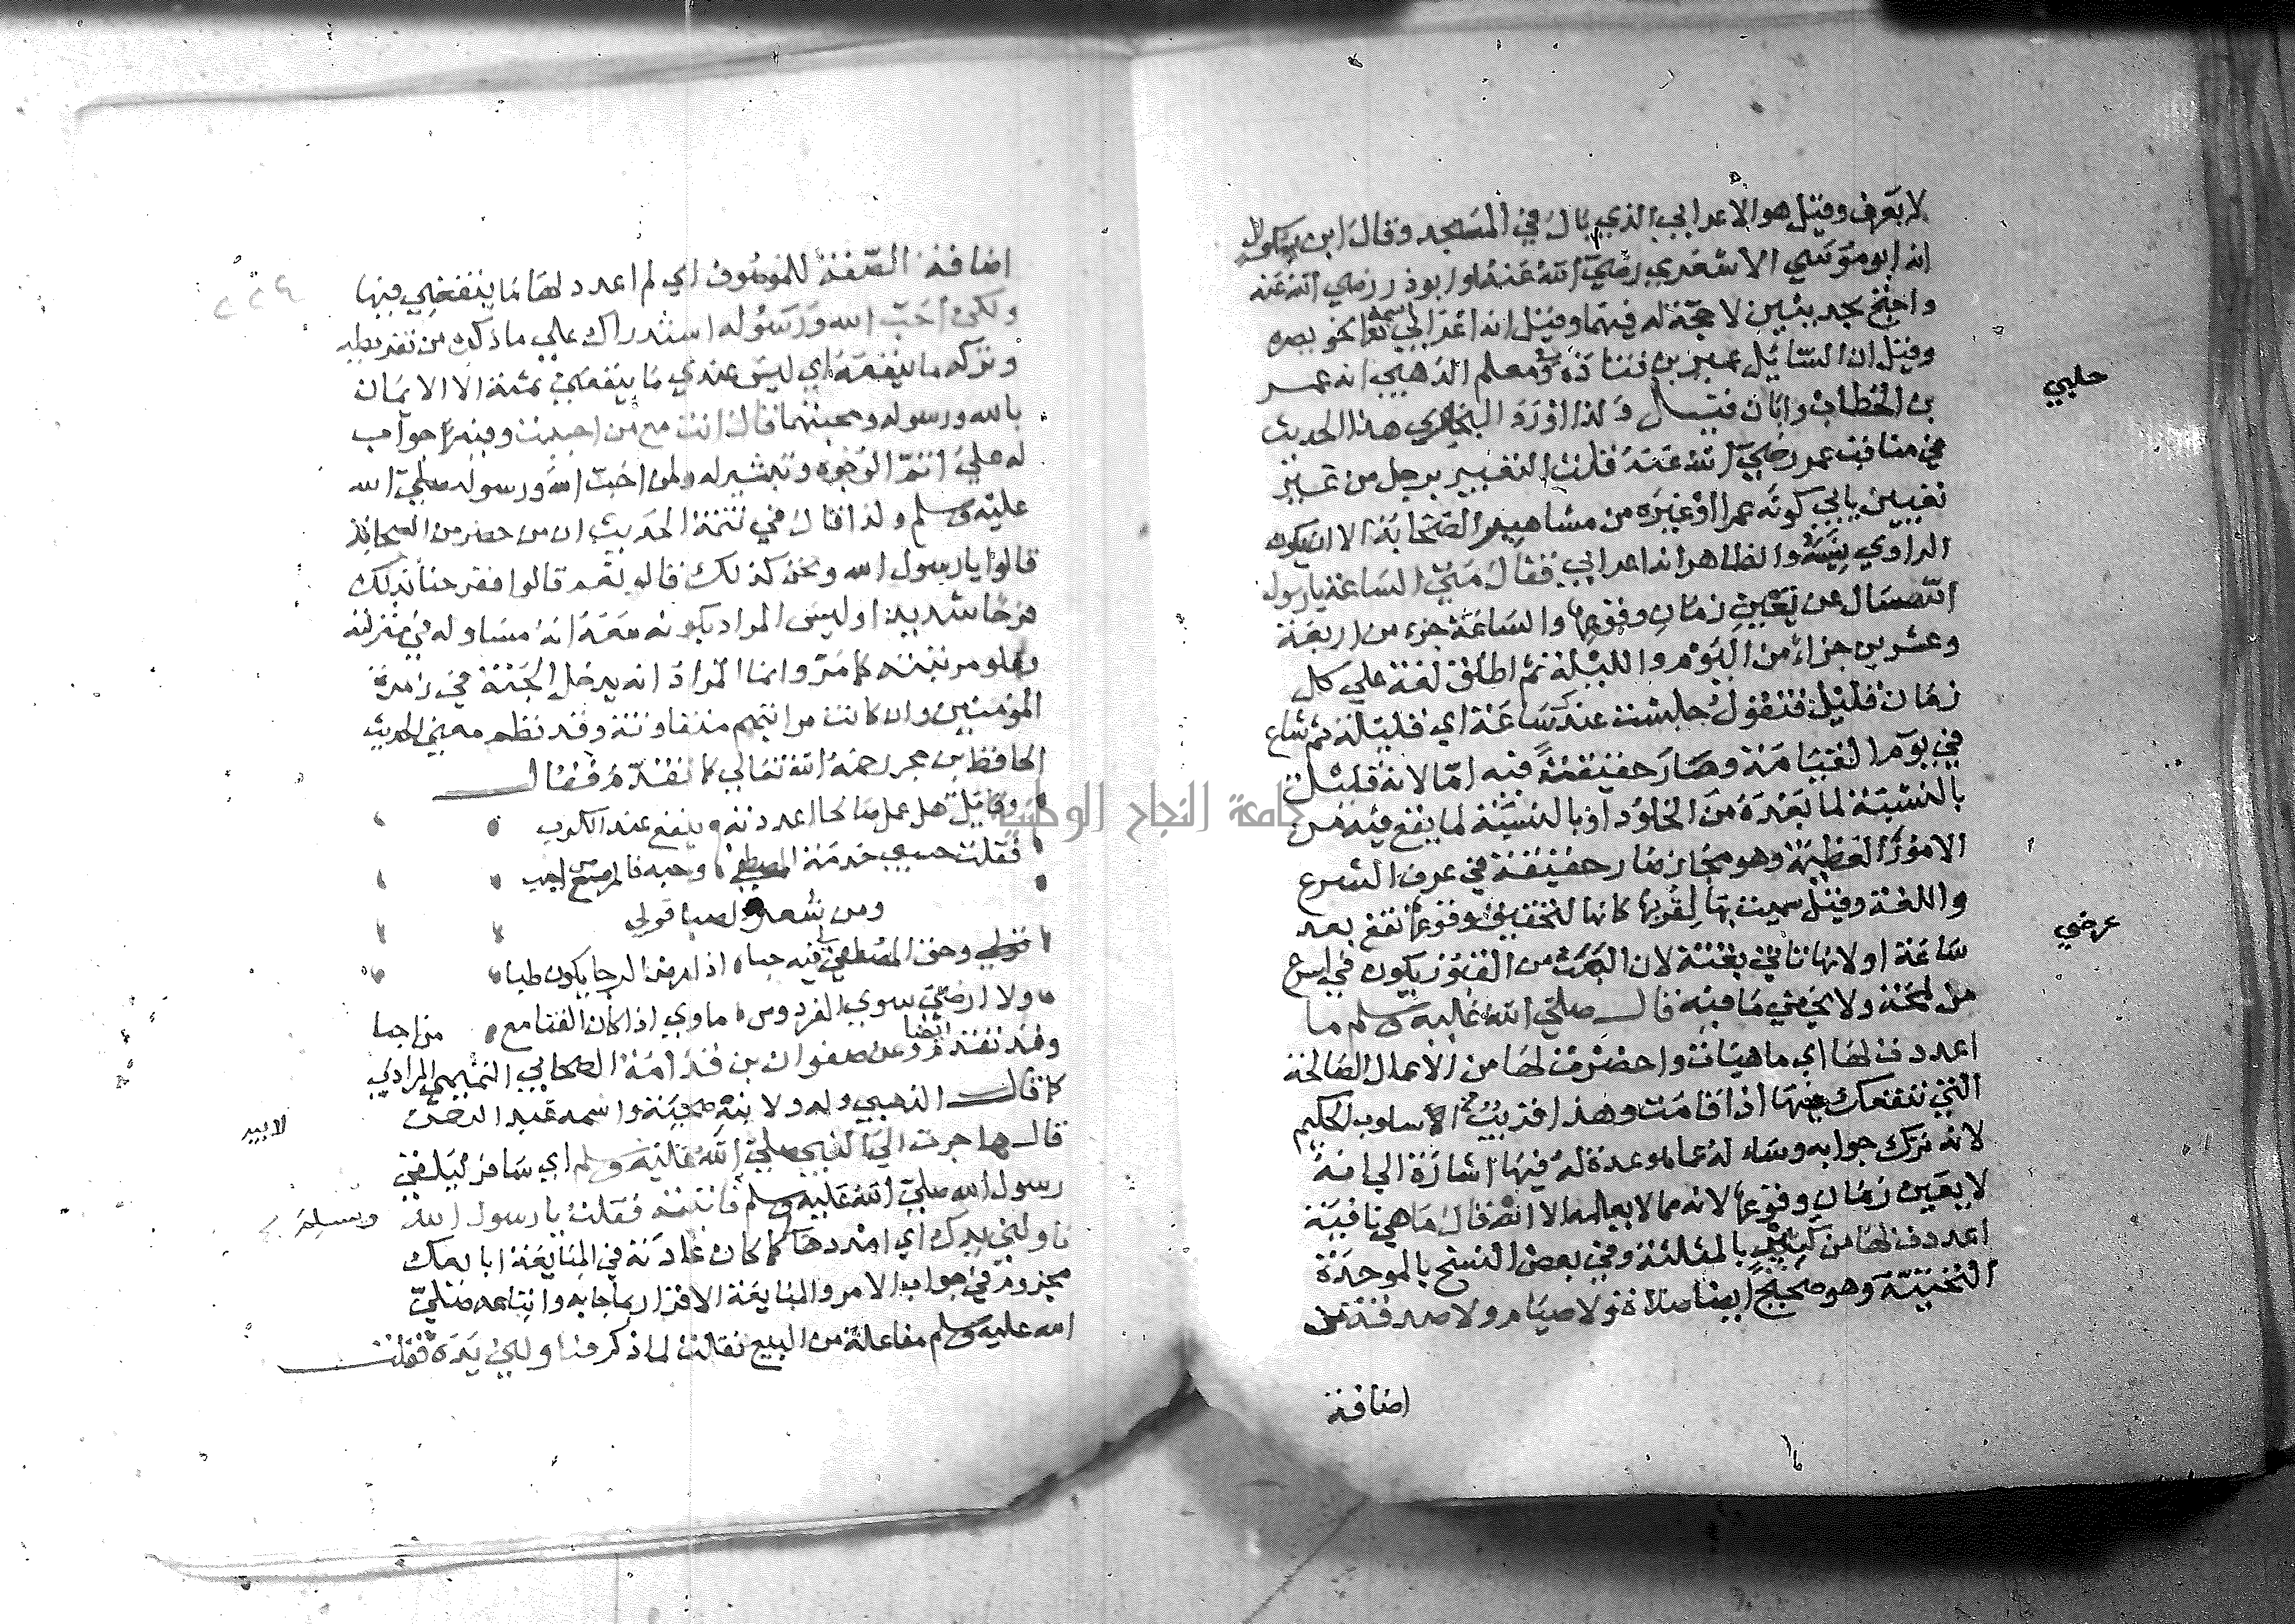 لا يعرف وقيل هو الاعرابي الذي بال في المسجد وقال ابن بشكوال
انه ابو موسي الاشعري رضي الله عنه او ابو ذر رضي الله عنه
واحتج بحديثين لا حجة له فيهما وقيل انه اعرابي
وقيل ان السائل عمير بن قتادة وفي معلم الذهبي انه عمر
بن الخطاب ولذا اورد البخاري هذا الحديث
في مناقب عمر رضي الله عنه قلت التعبير برجل من غير
تعيين يابي كونه عمر او غيره من مشاهير الصحابة الا ان يكون
الراوي والظاهر انه اعرابي فقال متي الساعة يا رسول
الله سال عن تعيين زمان وقوعها والساعة جزء من اربعة
وعشرين جزاء من اليوم والليلة ثم اطلق لغة علي كل
زمان قليل فتقول جلست عندك ساعة اي قليلة ثم شاع
في يوم القيامة وصار حقيقة فيه امّا لانه قليل
بالنسبة لما بعده من الخلود او بالنسبة لما يقع فيه من
الامور العظيمة وهو مجاز صار حقيقة في عرف الشرع
واللغة وقيل سميت بها لقربها كانها لتحقيق وقوعها تقع بعد
ساعة او لانها تاتي بغتة لان البعث من القبور يكون في اسرع
من لمحة ولا يخفي ما فيه قال صلي الله عليه وسلم ما
اعددت لها اي ما هيات واحضرت لها من الاعمال الصالحة
التي تنفعك فيها اذا قامت وهذا قريب من الاسلوب الحكيم
لانه ترك جوابه وساله عما اعده له فيها اشارة الي انه
لا يعين زمان وقوعها لانه مما لا يعلمه الا الله قال ما هي نافية
اعددت لها من كثير بالمثلثة وفي بعض النسخ بالموحدة
التحتية وهو صحيح ايضا صلاة ولا صيام ولا صدقة من
اضافة
حلبي
عرضي
٢٢٤
اضافة الصفة للموصوف اي لم اعدد لها ما ينفعني فيها
ولكن احب الله ورسوله استدراك علي ما ذكر من تفريطه
وتركه ما ينفعه اي ليس عندي ما ينفعني ثمة الا الايمان
بالله ورسوله ومحبتهما قال انت مع من احببت وفيه جواب
له علي اتم الوجوه وتبشير له ولمن احب الله ورسوله صلي الله
عليه وسلم ولذا قال في تتمة الحديث ان من حضر من الصحابة
قالوا يا رسول الله ونحن كذلك قال نعم قالوا ففرحنا بذلك
فرحا شديدا وليس المراد بكونه معه انه مساو له في منزلته
وعلو مرتبته كما مرّ وانما المراد انه يدخل الجنة في زمرة
المؤمنين وان كانت مراتبهم متفاوتة وقد نظم معني الحديث
الحافظ بن حجر رحمه الله تعالي كما تقدم فقال
وقائل هل عمل صالح اعددته ينفع عند الكرب
فقلت حسبي خدمة المصطفي وحبه فالمرء مع من احب
ومن شعر الصبا قولي
وحق المصطفي فيه حبا اذا مرض الرجا يكون طبا
ولا ارضي سوي الفردوس ماوي اذا كان الفتا مع من احبا
وقد تقدم ايضا وعن صفوان بن قدامة الصحابي التميمي المرادي
كما قال الذهبي وله ولابنه صحبة واسمه عبد الرحمن
قال هاجرت الي النبي صلي الله عليه وسلم اي سافر ليلقي
رسول الله صلي الله عليه وسلم فاتيته فقلت يا رسول الله
ناولني يدك اي امددها كما كان عادته في المبايعة ابايعك
مجزوم في جواب الامر والمبايعة الاقرار بما جا به واتباعه صلي
الله عليه وسلم مفاعلة من البيع
لابيه
وسلم
جامعة النجاح الوطنية